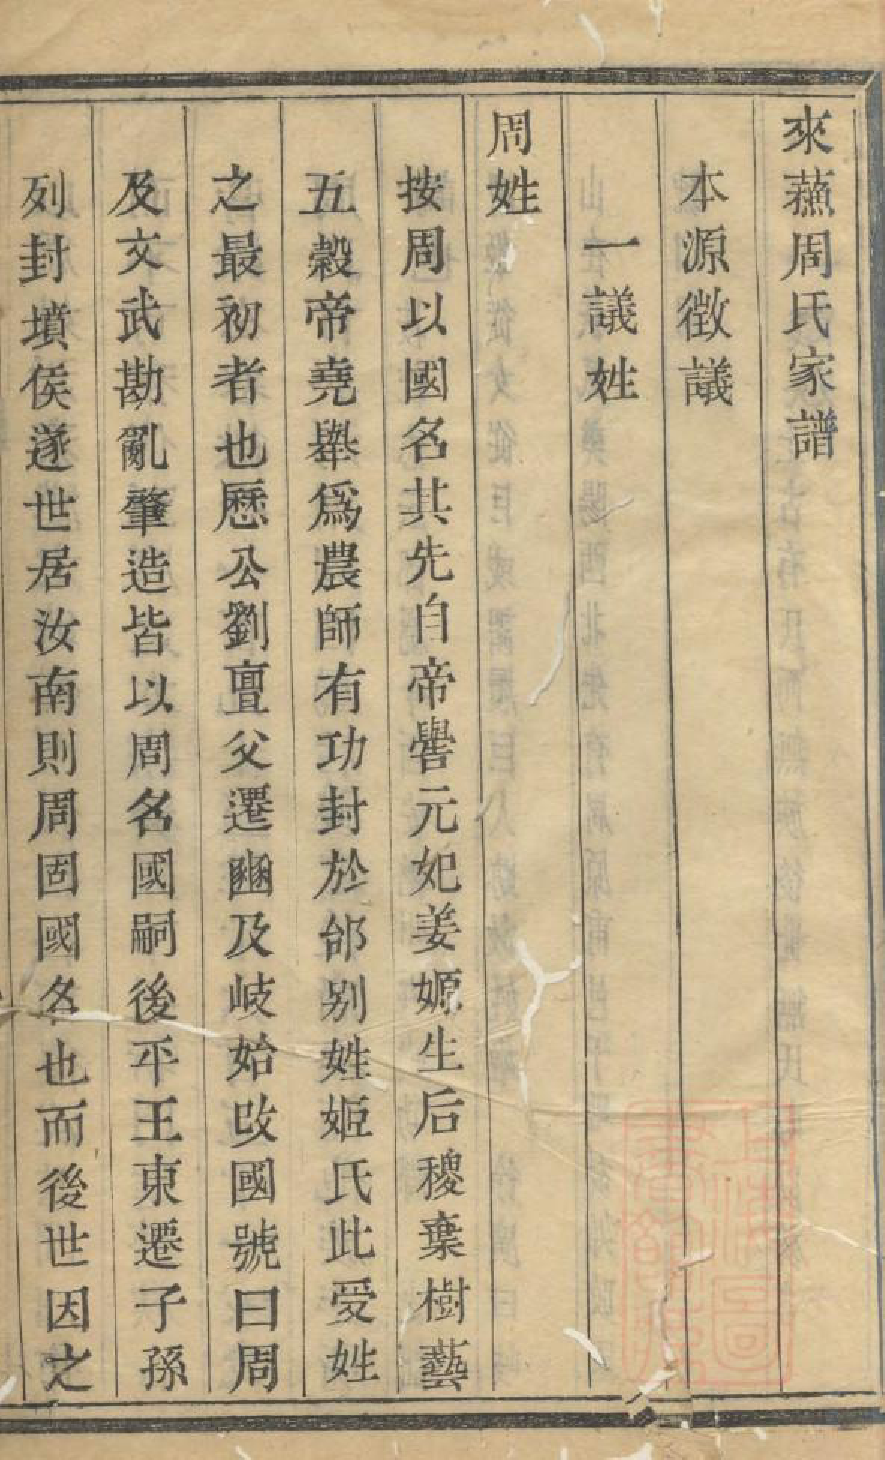 來蘓周氏家譜
本源徵議
一議姓
周姓
按周以國名其先自帝嚳元妃姜嫄生后稷棄樹藝
五榖帝堯舉爲農師有功封於邰别姓姬氏此爰姓
之最初者也歴公劉亶父遷豳及岐始攺國號曰周
及文武勘亂肇造皆以周名國嗣後平王東遷子孫
列封墳侯遂世居汝南則周固國名也而後世因之